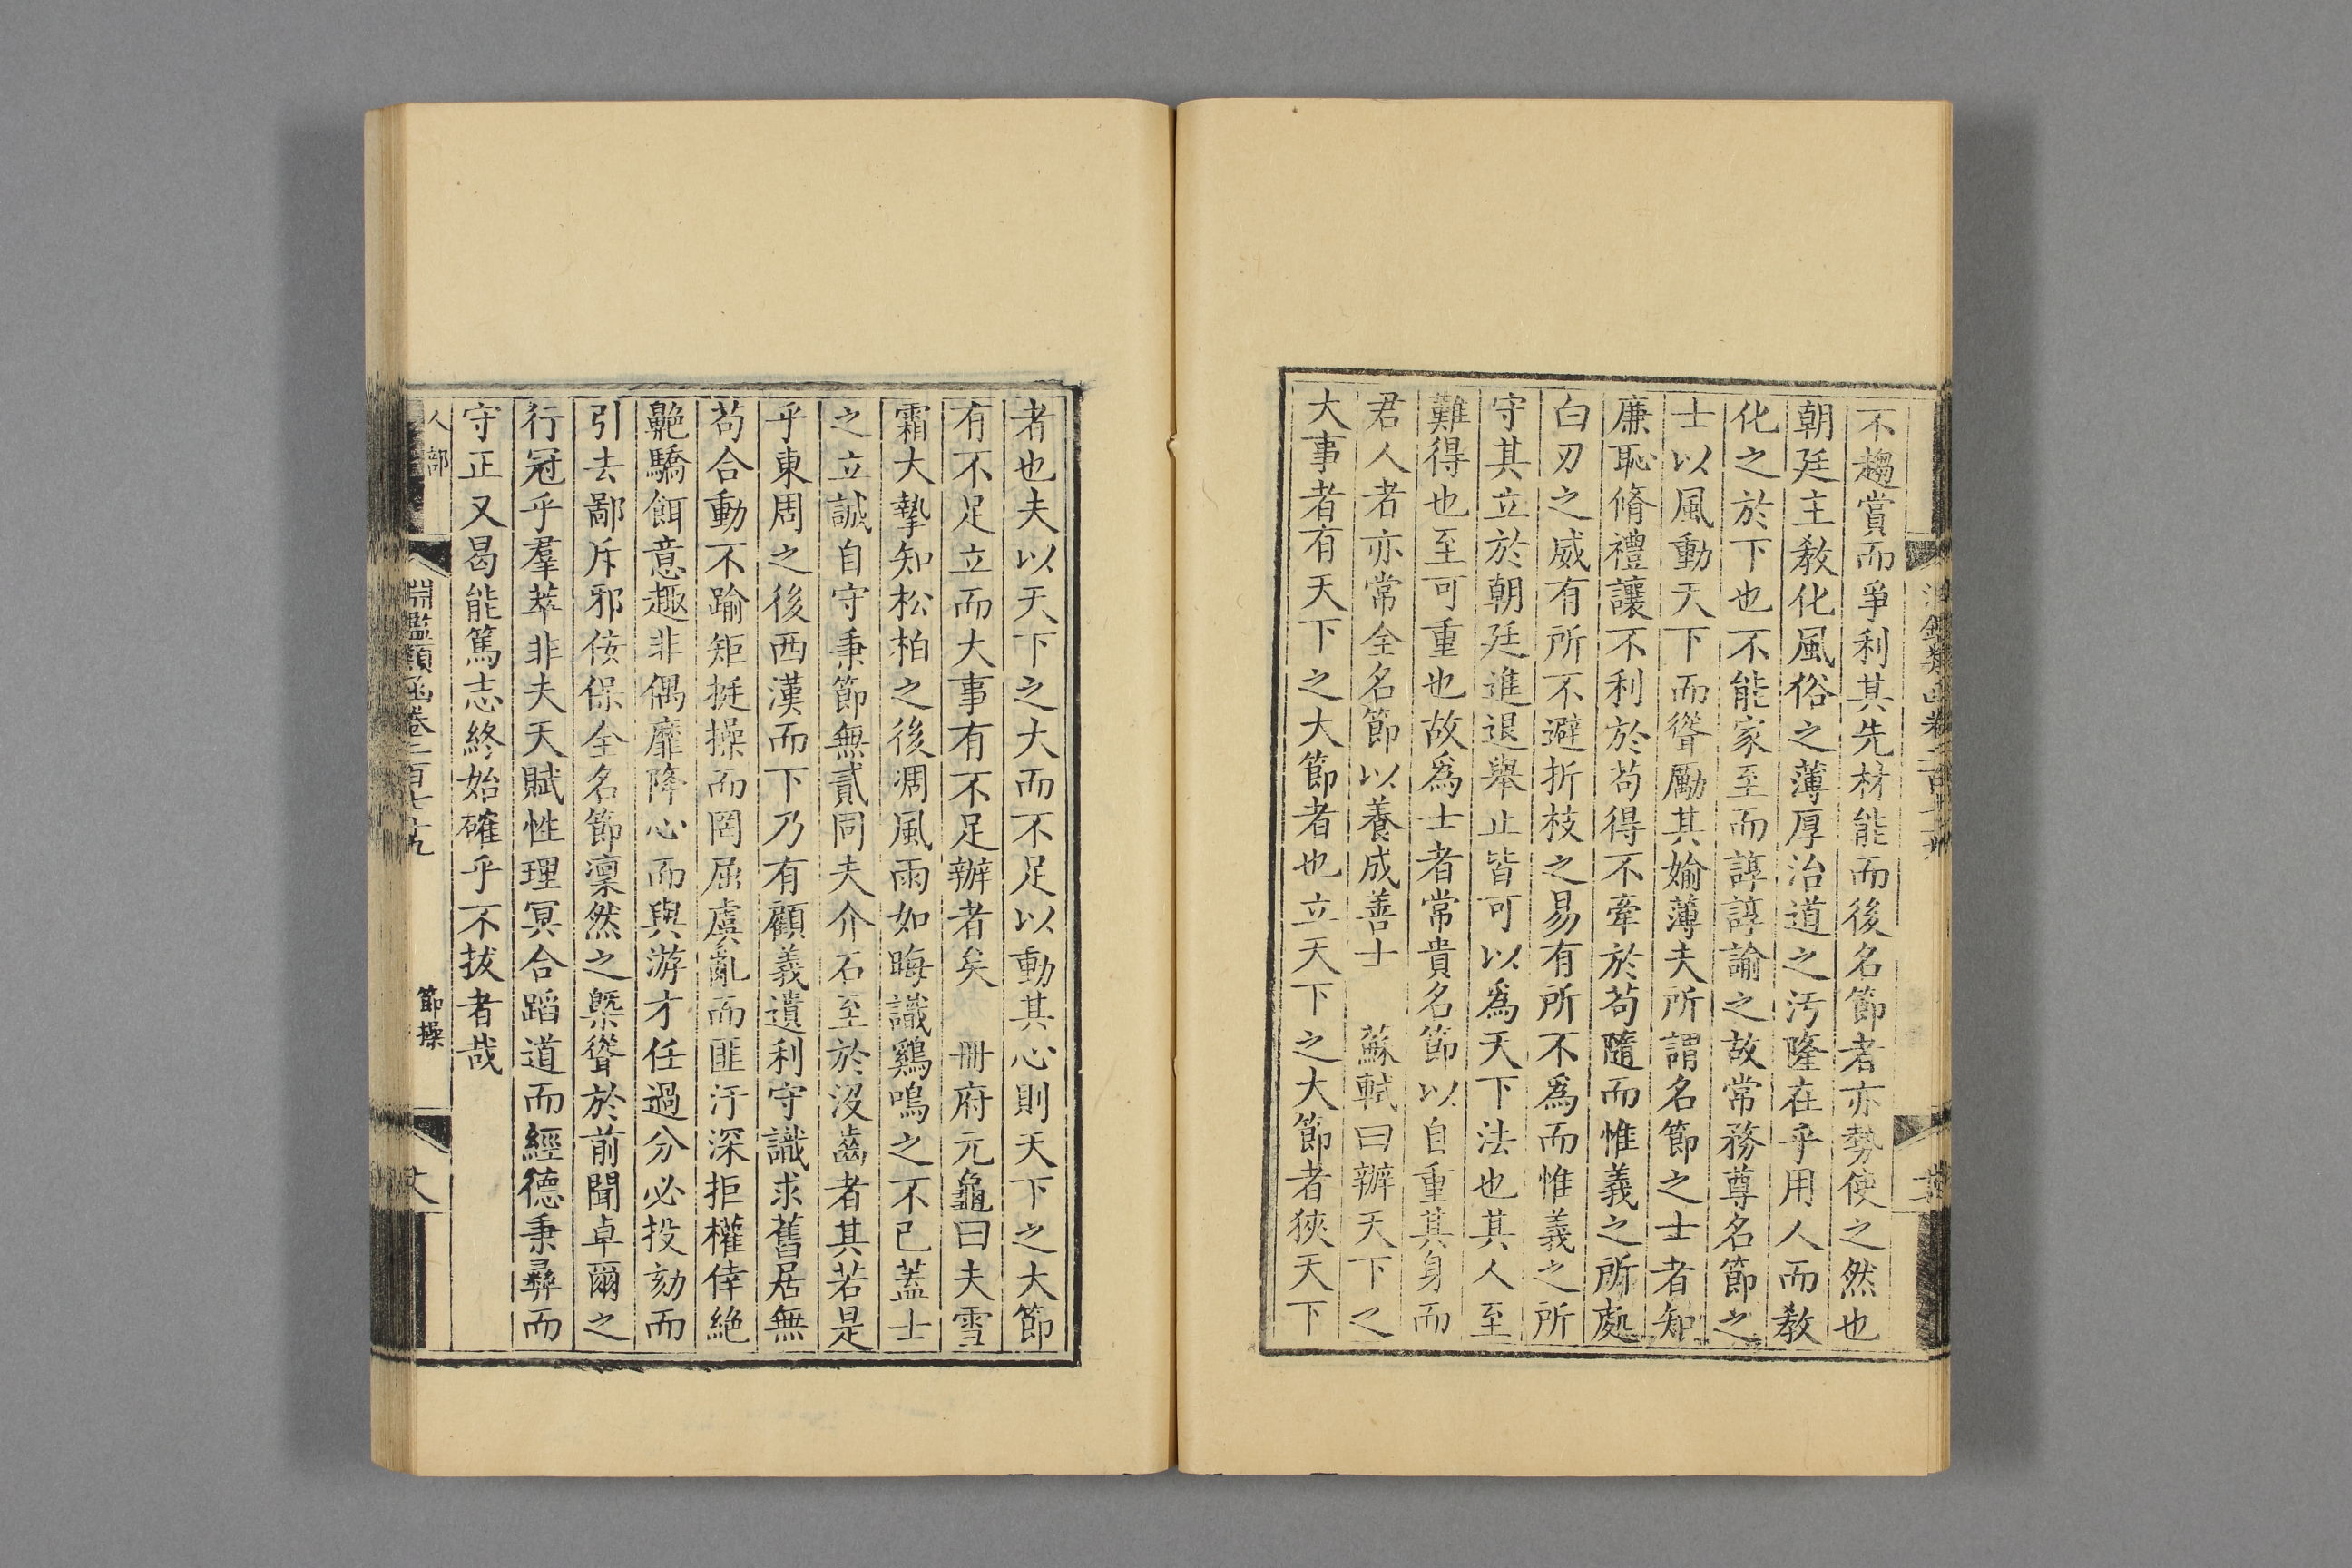 不趨賞而爭利其先材能而後名節者亦勢使之然也
朝廷主教化風俗之薄厚治道之汚隆在乎用人而教
化之於下也不能家至而諄諄諭之故常務尊名節之
士以風動天下而聳勵其媮薄夫所謂名節之士者知
廉恥脩禮讓不利於苟得不牽於苟隨而惟義之所處
白刃之威有所不避折枝之易有所不爲而惟義之所
守其立於朝廷進退舉止皆可以爲天下法也其人至
難得也至可重也故爲士者常貴名節以自重其身而
君人者亦常全名節以養成善士　蘇軾曰辦天下之
大事者有天下之大節者也立天下之大節者狹天下
者也夫以天下之大而不足以動其心則天下之大節
有不足立而大事有不足辦者矣　冊府元龜曰夫雪
霜大摯知松柏之後凋風雨如晦識鷄鳴之不已蓋士
之立誠自守秉節無貳同夫介石至於沒齒者其若是
乎東周之後西漢而下乃有顧義遺利守識求舊居無
苟合動不踰矩挺操而罔屈虞亂而匪汙深拒權倖絶
驕餌意趣非偶靡降心而與游才任過分必投劾而
引去鄙斥邪佞保全名節凜然之槩聳於前聞卓爾之
行冠乎羣萃非夫天賦性理冥合蹈道而經德秉彝而
守正又曷能篤志終始確乎不拔者哉
人部
淵鑑類函卷二百七十九
節操